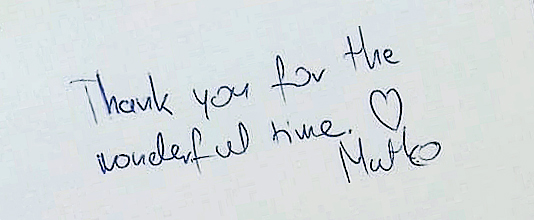 Thank you for the
wonderful time. ♡